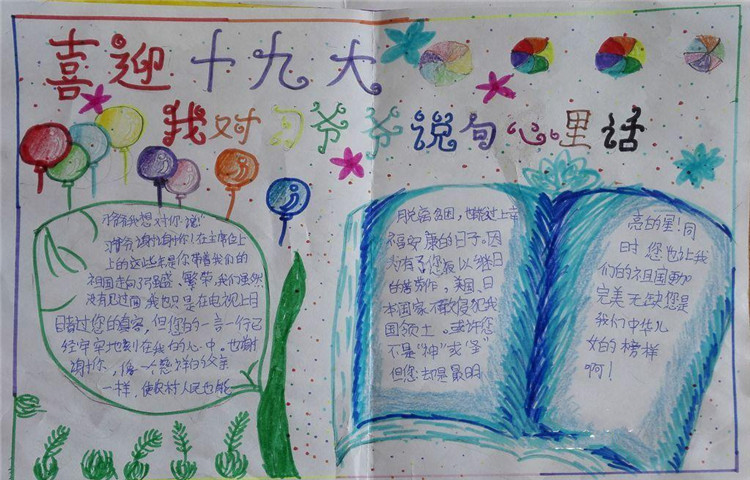 喜迎十九大
我对习爷爷说句心里话
爷爷我想对你说!"
爷爷,谢谢你!在主席位上
上的这些年是你带着我们的
祖国走向了强盛、繁荣,我们虽然
没有见过面,我也只是在电视上目
睹过您的真容,但您的一言一行已
经牢牢地刻在我的心中。也谢
谢你,像一个慈祥的父亲
一样,使农村人民也能
脱离贫困,也能过上幸
福安康的日子。因
为有了您夜以继日
的着劳作,美国、日
本国家不敢侵犯我
国领土。或许您
不是"神"或"圣"
但您却是最明
亮的星!同
时您也让我
们的祖国更加
完美无缺您是
我们中华儿
女的榜样
啊!